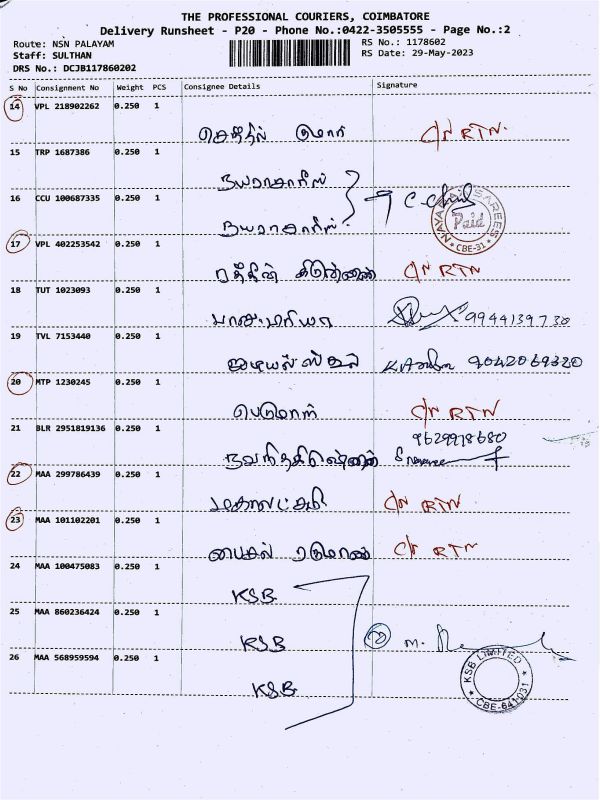 THE PROFESSIONAL COURIERS, COIMBATORE
Delivery Runsheet - P20 - Phone No.:0422-3505555 - Page No.:2
Route: NSN PALAYAM
RS No.: 1178602
Staff: SULTHAN
RS Date: 29-May-2023
DRS No.: DCJB117860202
S No Consignment No Weight PCS Consignee Details Signature
14 VPL 218902262 0.250 1
செந்தில் குமார் C/N RTN.
15 TRP 1687386 0.250 1
நயாராசாரீஸ்
16 CCU 100687335 0.250 1
NAYARA SAREES Paid CBE-31
நயராசாரீஸ்
17 VPL 402253542 0.250 1
C/N RTN
18 TUT 1023093 0.250 1
9944139730
19 TVL 7153440 0.250 1
ஐடியல் ஸ்கூல் 9042069320
20 MTP 1230245 0.250 1
பெருமாள் C/N RTN
21 BLR 2951819136 0.250 1
9629978680
நவநீதகிருஷ்ணன்
22 MAA 299786439 0.250 1
மகாலட்சுமி C/N RTN
23 MAA 101102201 0.250 1
பைசல் ரகுமான் C/N RTN
24 MAA 100475083 0.250 1
KSB
25 MAA 860236424 0.250 1
KSB
26 MAA 568959594 0.250 1
KSB LIMITED CBE-641031
KSB